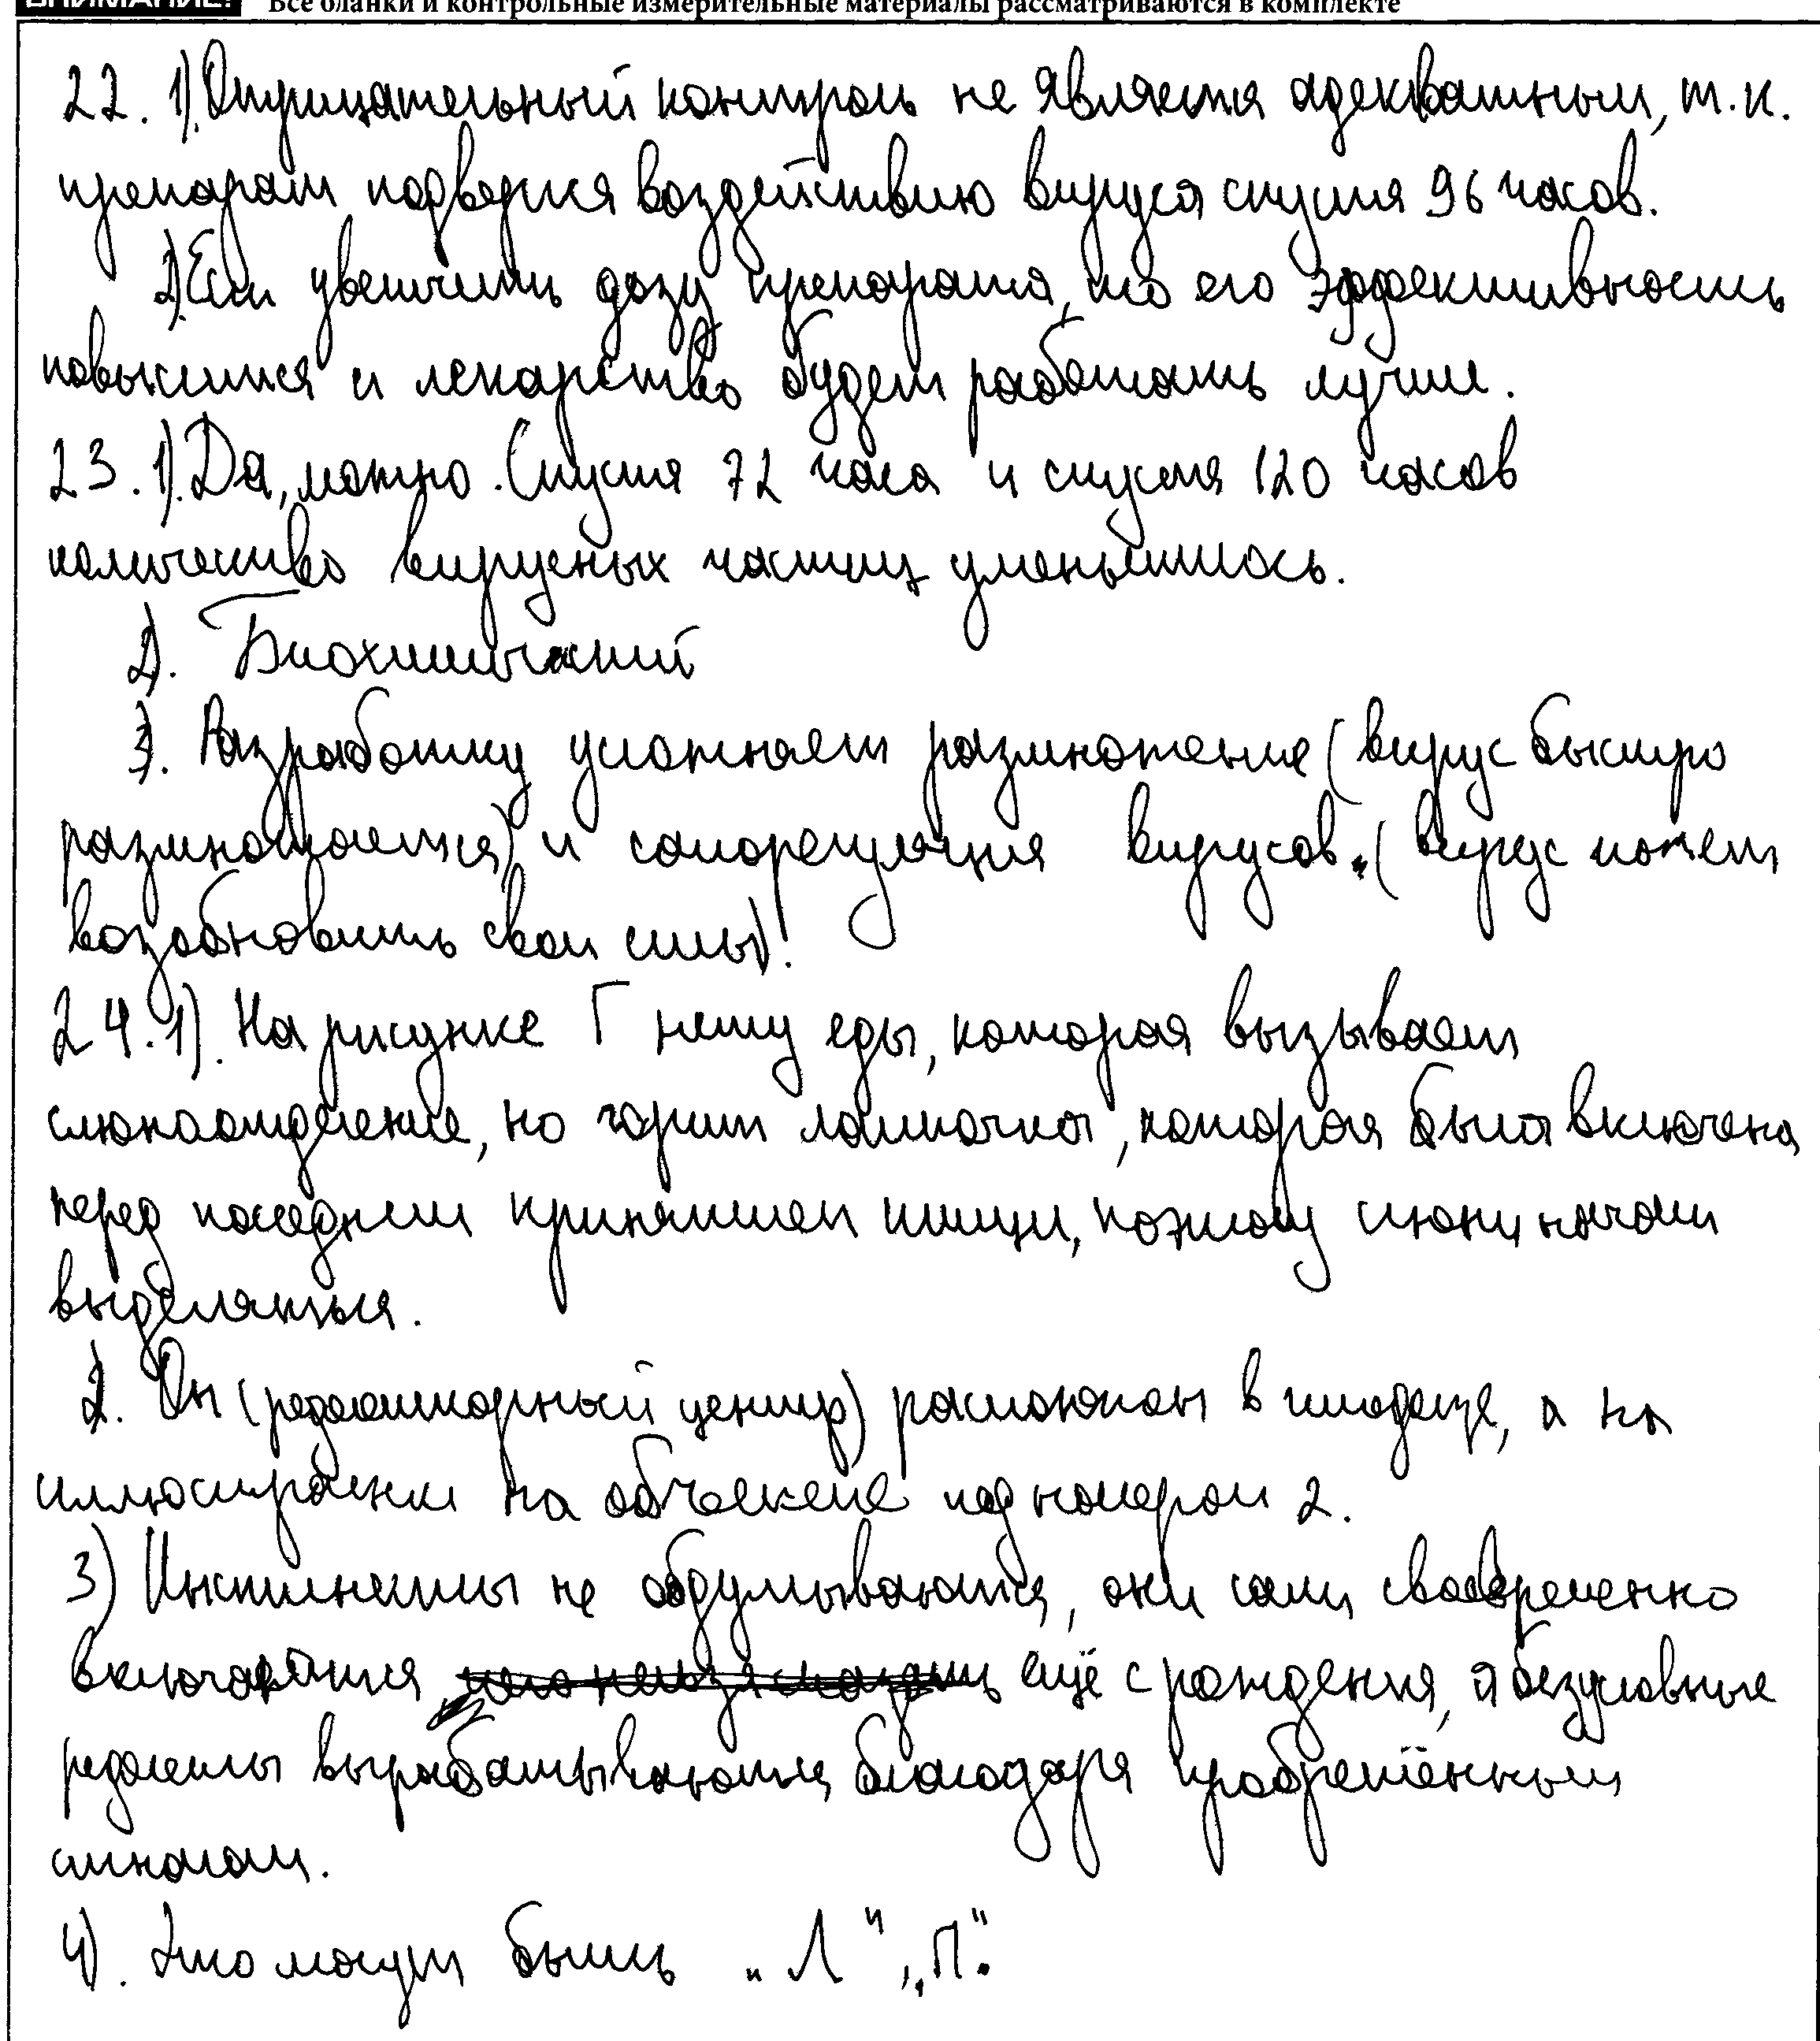 ВНИМАНИЕ! Все бланки и контрольные измерительные материалы рассматриваются в комплекте
22. 1). Отрицательный контроль не является адекватным, т.к.
препарат подвергся воздействию вируса спустя 96 часов.
2). Если увеличить дозу препарата, то его эффективность
повысится и лекарство будет работать лучше.
23. 1). Да, можно. Спустя 72 часа и спустя 120 часов
количество вирусных частиц уменьшилось.
2). Биохимический
3). Разработку усложняет размножение (вирус быстро
размножается) и саморегуляция вирусов. (вирус может
возобновить свои силы)!
24. 1). На рисунке Г нету еды, которая вызывает
слюноотделение, но горит лампочка, которая была включена
перед последнем принятием пищи, поэтому слюни начали
выделяться.
2. Он (рефлекторный центр) расположен в гиподерме, а на
иллюстрации на объекте под номером 2.
3) Инстинкты не обдумываются, они сами своевременно
включаются ещё с рождения, а безусловные
рефлексы вырабатываются благодаря приобретённым
сигналам.
4). Это могут быть „Л“, „П“.